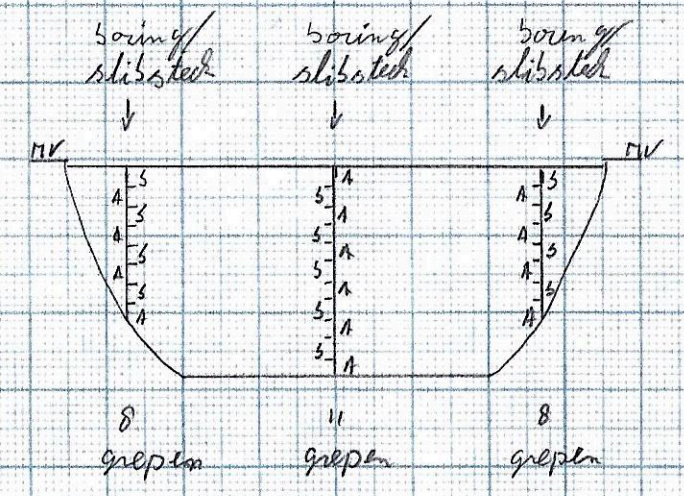 boring/
slibsteek
boring/
slibsteek
boring/
slibsteek
MV
MV
S
A
S
A
S
A
S
A
A
S
A
S
A
S
A
S
A
S
A
S
A
S
A
S
A
S
A
8
grepen
11
grepen
8
grepen